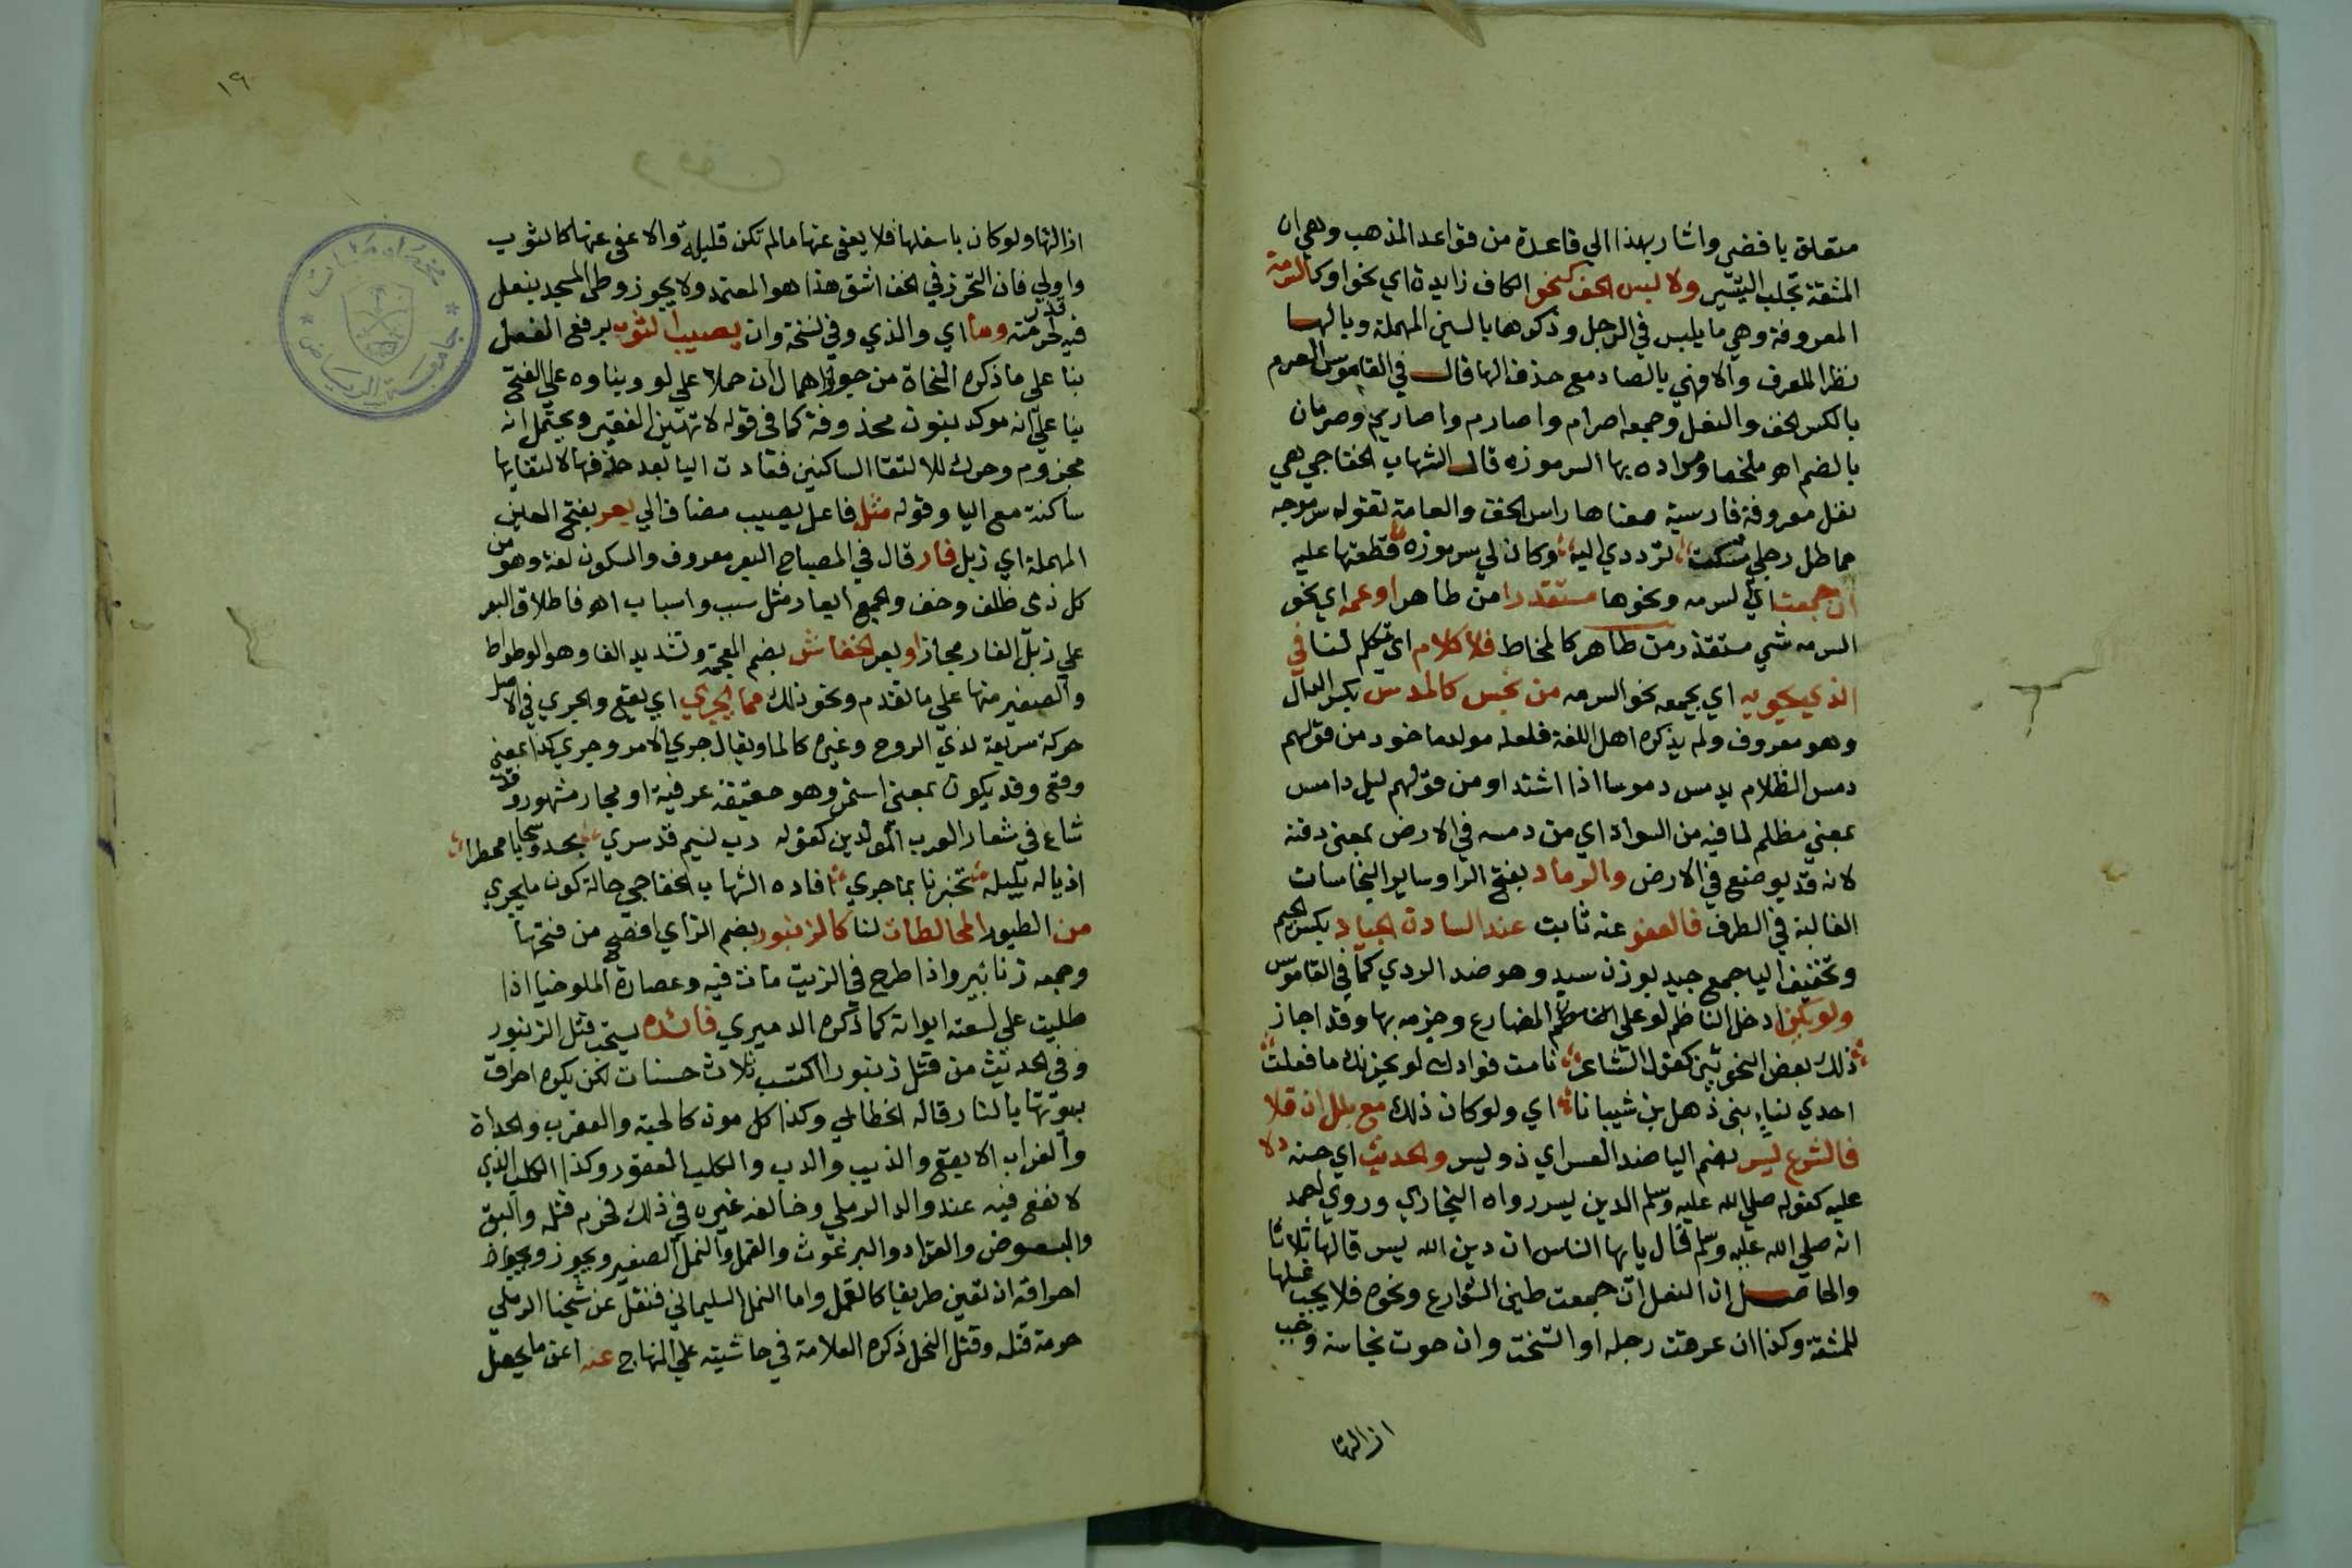 متعلق يا فضي واشار بهذا الي قاعدة من قواعد المذهب وهي ان
المشقة تجلب التيسير ولا لبس الخف كنحو الكاف زايدة اي نحو او كالسرمة
المعروفة وهي ما يلبس في الرجل وذكرها بالسين المهملة وبالها
نظرا للعرف والافهي بالصاد مع حذف الها قال في القاموس الصرم
بالكسر الخف والنعل وجمعه اصرام واصارم واصاريم وصرمان
بالضم اهو ملخصا ومراده بها السرموزه قال الشهاب الخفاجي هي
نعل معروفة فارسية معناها راس الخف والعامة تقوله سرموجه
مماطل رجلي شكت لترددي اليه وكان لي سرموزه قطعتها عليه
ان جمعت اي السرمه ونحوها مستقذرا من طاهر او عمه اي نحو
السرمه شي مستقذر من طاهر كالمخاط فلا كلام اي تكلم لنا في
الذي يحويه اي يجمعه نحو السرمه من نجس كالمدس بكسر الدال
وهو معروف ولم يذكره اهل اللغة فلعله مولد ماخوذ من قولهم
دمس الظلام يدمس دموسا اذا اشتد او من قولهم ليل دامس
بمعني مظلم لما فيه من السواد اي من دمسه في الارض بمعنى دفنه
لانه قد يوضع في الارض والرماد بفتح الرا وساير النجاسات
الغالبة في الطرف فالعفو عنه ثابت عند السادة الجياد بكسر الجيم
وتخفيف اليا جمع جيد بوزن سيد وهو ضد الردي كما في القاموس
ولو يكن ادخل الناظم لو علي المضارع وجزمه بها وقد اجاز
ذلك بعض النحويين كقول الشاعر نامت فوادك لو يحزنك ما فعلت
احدي نساء بني ذهل بن شيبانا اي ولو كان ذلك مع بلل ان قلا
فالشرع ليسر بضم اليا ضد العسر اي ذو يسر والحديث اي حنه دلا
عليه كقوله صلي الله عليه وسلم الدين يسر رواه البخاري وروي احمد
انه صلي الله عليه وسلم قال يايها الناس ان دين الله يسر قالها ثلاثا
والحاصل ان النعل ان جمعت طين الشوارع ونحوه فلا يجب غسلها
للمشقة وكذا ان عرقت رجله او اتسخت وان حوت نجاسة وجب
ازالتها
١٩
ازالتها ولو كان باسفلها فلا يعفى عنها مالم تكن قليلة والا عفي عنها كالثوب
واولي فان التحرز في الخف اشق هذا هو المعتمد ولا يجوز وطى المسجد بنعل
فيه قذر لحرمته وما اي والذي وفي نسخة وان يصيب الثوب برفع الفعل
بنا علي ما ذكره النحاة من جواز اهمال ان حملا علي لو وبناوه علي الفتح
بنا علي انه موكد بنون محذوفة كما في قوله لا تهين الفقير ويحتمل انه
مجزوم وحرك للالتقا الساكنين فعادت اليا بعد حذفها لالتقايها
ساكنة مع اليا وقوله مثل فاعل يصيب مضاف الي بعر بفتح العين
المهملة اي زبل فار قال في المصباح البعر معروف والسكون لغة وهو من
كل ذي ظلف وخف والجمع ابعار مثل سبب واسباب اهو فاطلاق البعر
علي زبل الفار مجاز او بعر الخفاش بضم المعجمة وتشديد الفا وهو الوطواط
والصغير منها علي ما تقدم ونحو ذلك مما يجري اي يقع والجري في الاصل
حركة سريعة لذي الروح وغيره كالما ويقال جري الامر وجري كذا بمعنى
وقع وقد يكون بمعنى استمر وهو حقيقة عرفية او مجاز مشهور وقد
شاع في شعار العرب المولدين كقوله رب نسيم قد سري يحدو سحابا ممطرا
اذياله بليله تخبرنا بما جري افاده الشهاب الخفاجي حالة كون ما يجري
من الطيور المخالطات لنا كالزنبور بضم الزاي افصح من فتحها
وجمعه زنابير واذا طرح في الزيت مات فيه وعصارة الملوخيا اذا
طليت علي لسعته ابراته كما ذكره الدميري فائده يستحب قتل الزنبور
وفي الحديث من قتل زنبورا اكتسب ثلاث حسنات لكن يكره احراق
بيوتها بالنار قاله الخطابي وكذا كل موذ كالحية والعقرب والحداة
والغراب الابقع والذيب والدب والكلب العقور وكذا الكلب الذي
لا نفع فيه عند والد الرملي وخالفه غيره في ذلك فحرم قتله والبق
والبعوض والقراد والبرغوث والقمل والنمل الصغير ويجوز
احراقه ان تعين طريقا كالقمل واما النمل السليماني فنقل عن شيخنا الرملي
حرمة قتله وقتل النحل ذكره العلامة في حاشيته علي المنهاج عنه اعن ما يحصل